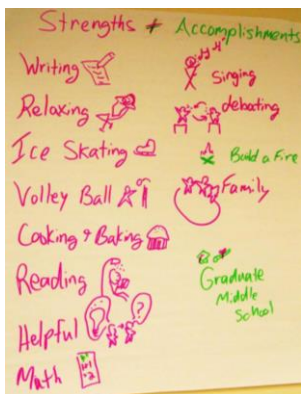 Strengths + Accomplishments
Writing
Relaxing
Ice Skating
Volley Ball
Cooking & Baking
Reading
Helpful
Math
Singing
debating
Build a Fire
Family
Graduate
Middle
School